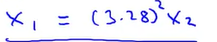 x₁ = (3.28)² x₂